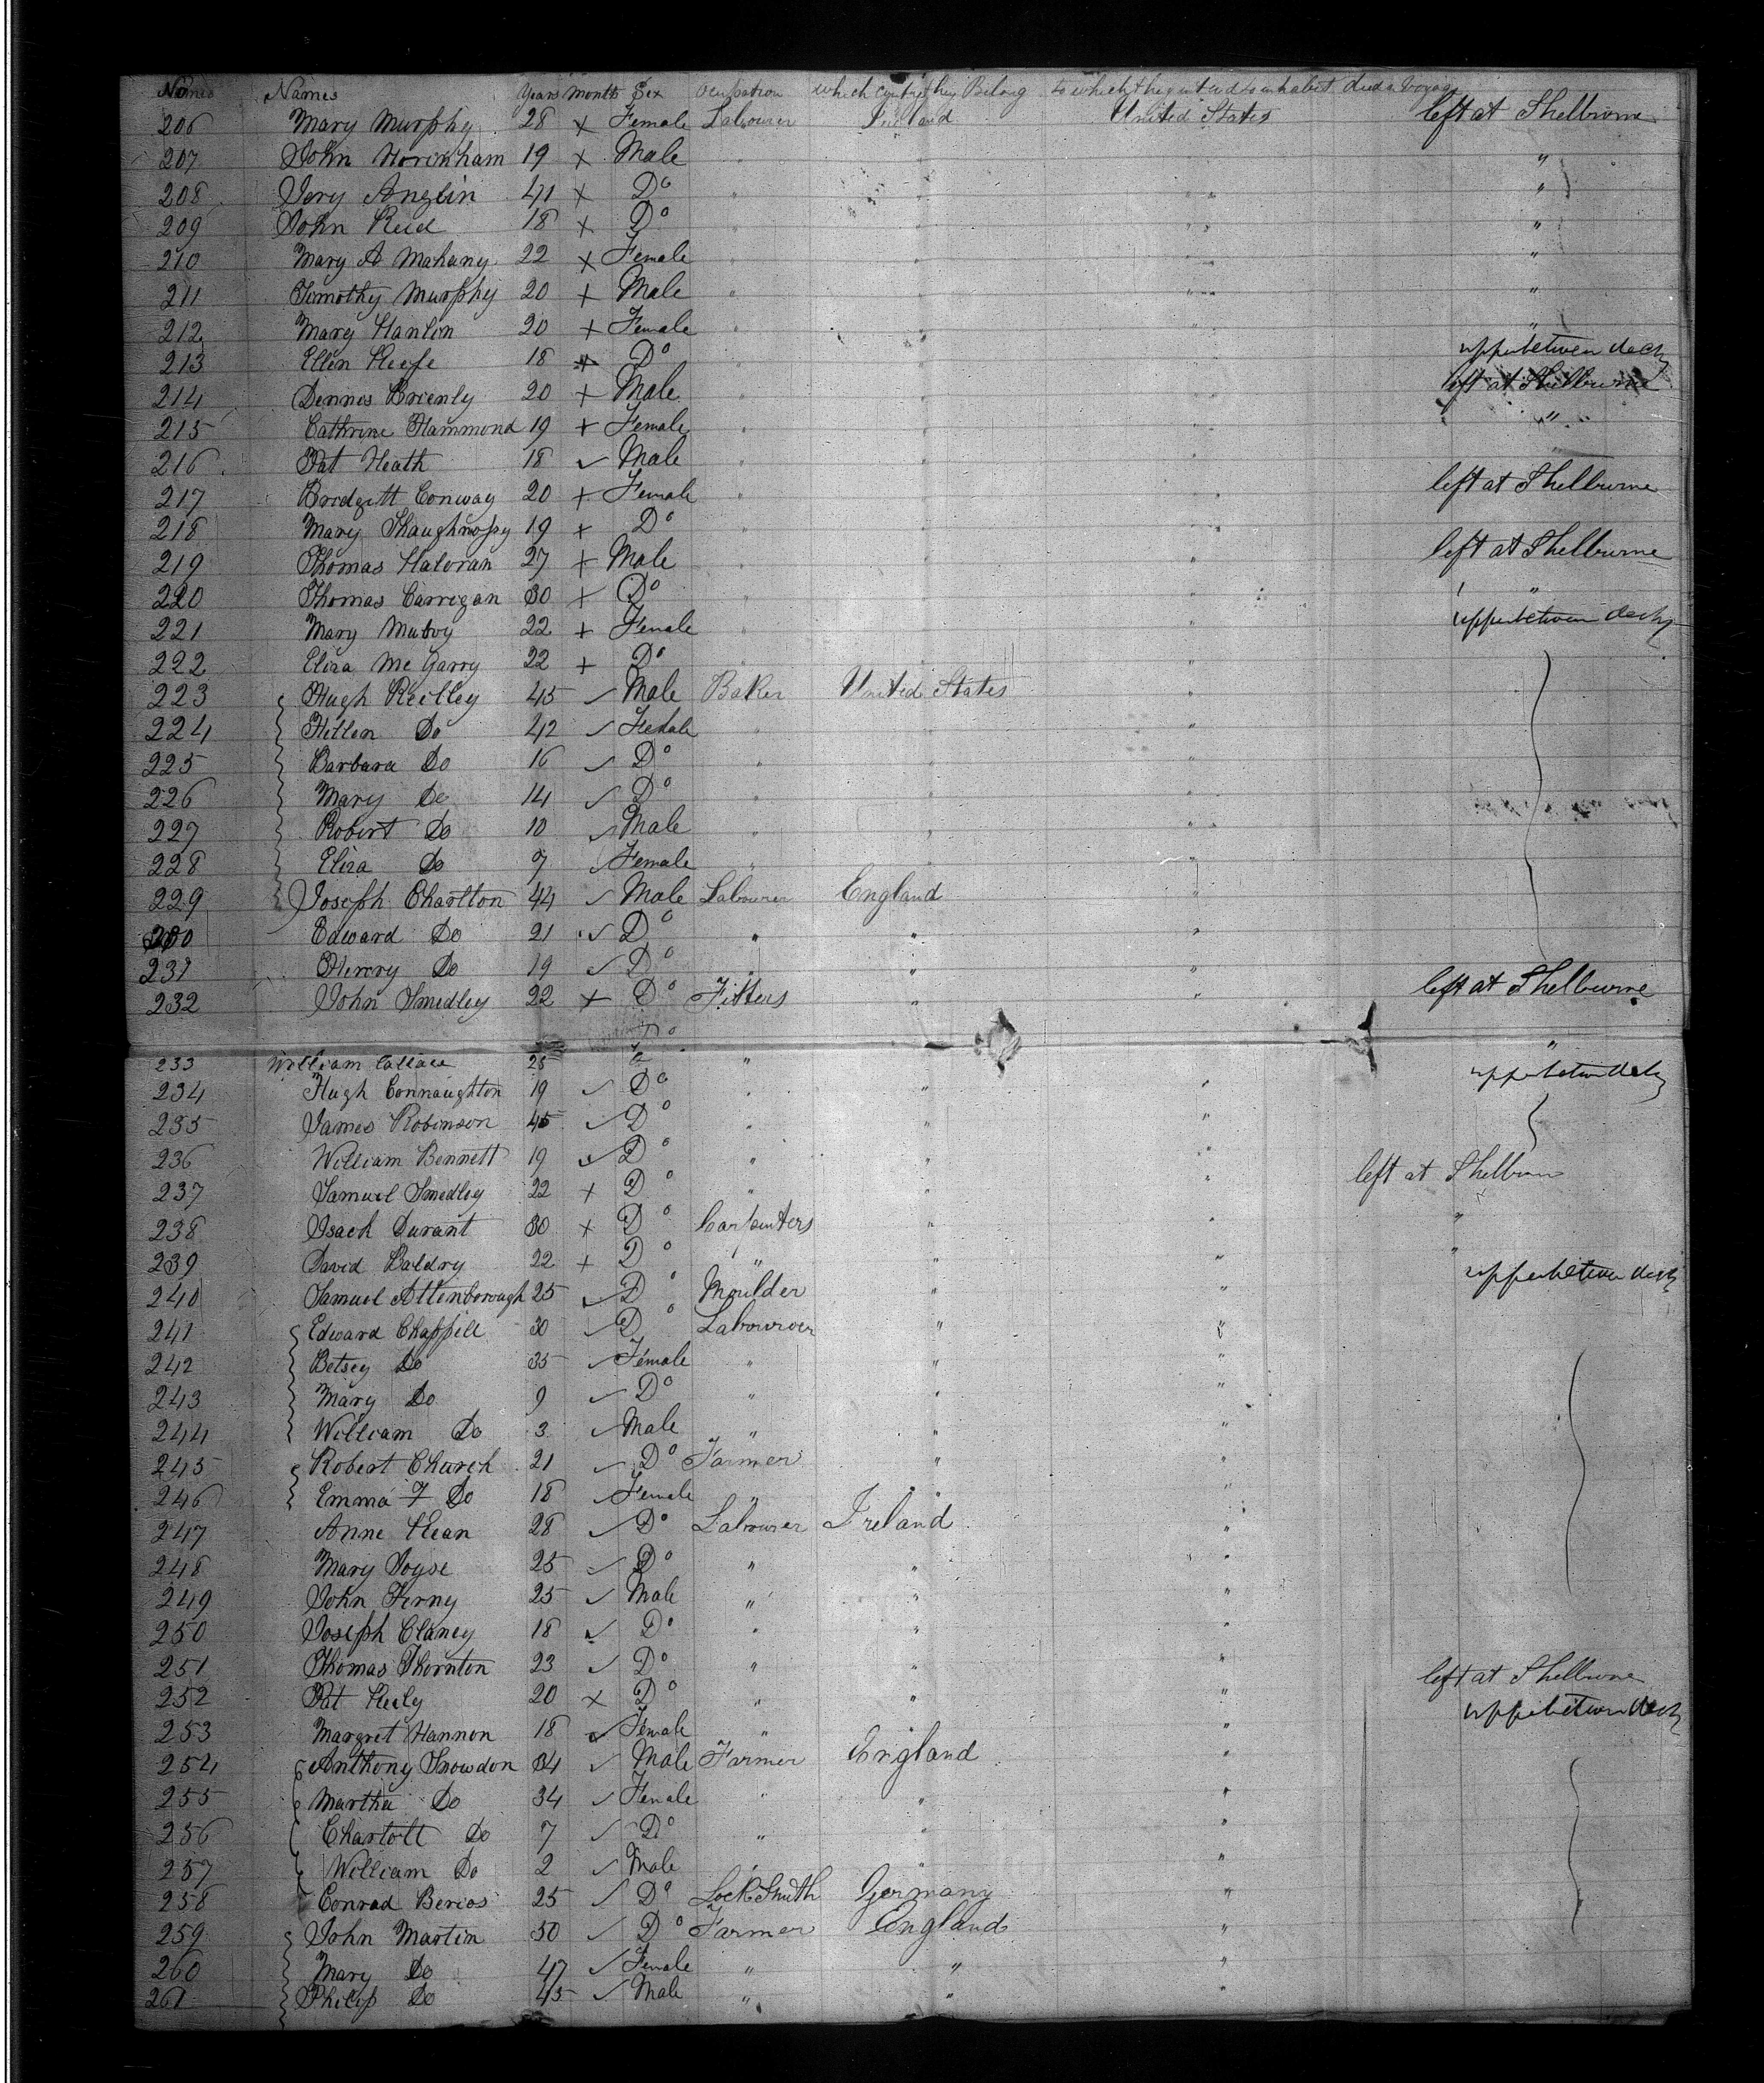 No Names Years Months Sex Ocupation which cyntre they Belong to which they intend to inhabit died on Voyage
206 Mary Murphy 28 x Female Labourer Ireland United States left at Shelburne
207 John 19 x Male " " " "
208 Jery Anglin 41 x Do " " " "
209 John Reid 18 x Do " " " "
210 Mary A Mahany 22 x Female " " " "
211 Timothy Murphy 20 + Male " " " "
212 Mary Hanlon 20 + Female " " " "
213 Ellen Keefe 18 + Do " " " upper between decks
214 Dennis Brienly 20 + Male " " " left at Shelburne
215 Cathrine Hammond 19 + Female " " " "
216 Pat Heath 18 ✓ Male " " "
217 Bridgett Conway 20 + Female " " " left at Shelburne
218 Mary Shaughnessy 19 + Do " " "
219 Thomas Haloran 27 + Male " " " left at Shelburne
220 Thomas Carrigan 30 + Do " " " "
221 Mary Mulvy 22 + Female " " " upper between decks
222 Eliza McGarry 22 + Do " " "
223 Hugh Reilley 45 ✓ Male Baker United States "
224 Hellen Do 42 ✓ Female " " "
225 Barbara Do 16 ✓ Do " " "
226 Mary Do 14 ✓ Do " " "
227 Robert Do 10 ✓ Male " " "
228 Eliza Do 9 ✓ Female " " "
229 Joseph Charlton 44 ✓ Male Labourer England "
230 Edward Do 21 ✓ Do " " "
231 Henry Do 19 ✓ Do " " "
232 John Smedley 22 x Do Fitters " " left at Shelburne
233 William Callace 25 x Do " "
234 Hugh Connaughton 19 ✓ Do " " " upper between decks
235 James Robinson 45 ✓ Do " " "
236 William Bennett 19 ✓ Do " " "
237 Samuel Smedley 22 + Do " " " left at Shelburn
238 Isach Durant 30 x Do Carpenters " " "
239 David Baldry 22 + Do " " " "
240 Samuel Attenborough 25 ✓ Do Moulder " " upper between decks
241 Edward Chappell 30 ✓ Do Labourer " "
242 Betsey Do 35 ✓ Female " " "
243 Mary Do 9 ✓ Do " " "
244 William Do 3 ✓ Male " " "
245 Robert Church 21 ✓ Do Farmer " "
246 Emma F Do 18 ✓ Female " " "
247 Anne Kean 28 ✓ Do Labourer Ireland "
248 Mary Joyse 25 ✓ Do " " "
249 John Ferny 25 ✓ Male " " "
250 Joseph Clancy 18 ✓ Do " " "
251 Thomas Thornton 23 ✓ Do " " "
252 Pat Kiely 20 x Do " " " left at Shelburne
253 Margret Hannon 18 ✓ Female " " " upper between decks
254 Anthony Snowdon 34 ✓ Male Farmer England "
255 Martha Do 34 ✓ Female " " "
256 Charlott Do 7 ✓ Do " " "
257 William Do 2 ✓ Male " " "
258 Conrad Berios 25 ✓ Do LockSmith Germany "
259 John Martin 50 ✓ Do Farmer England "
260 Mary Do 47 ✓ Female " " "
261 Philip Do 45 ✓ Male " " "